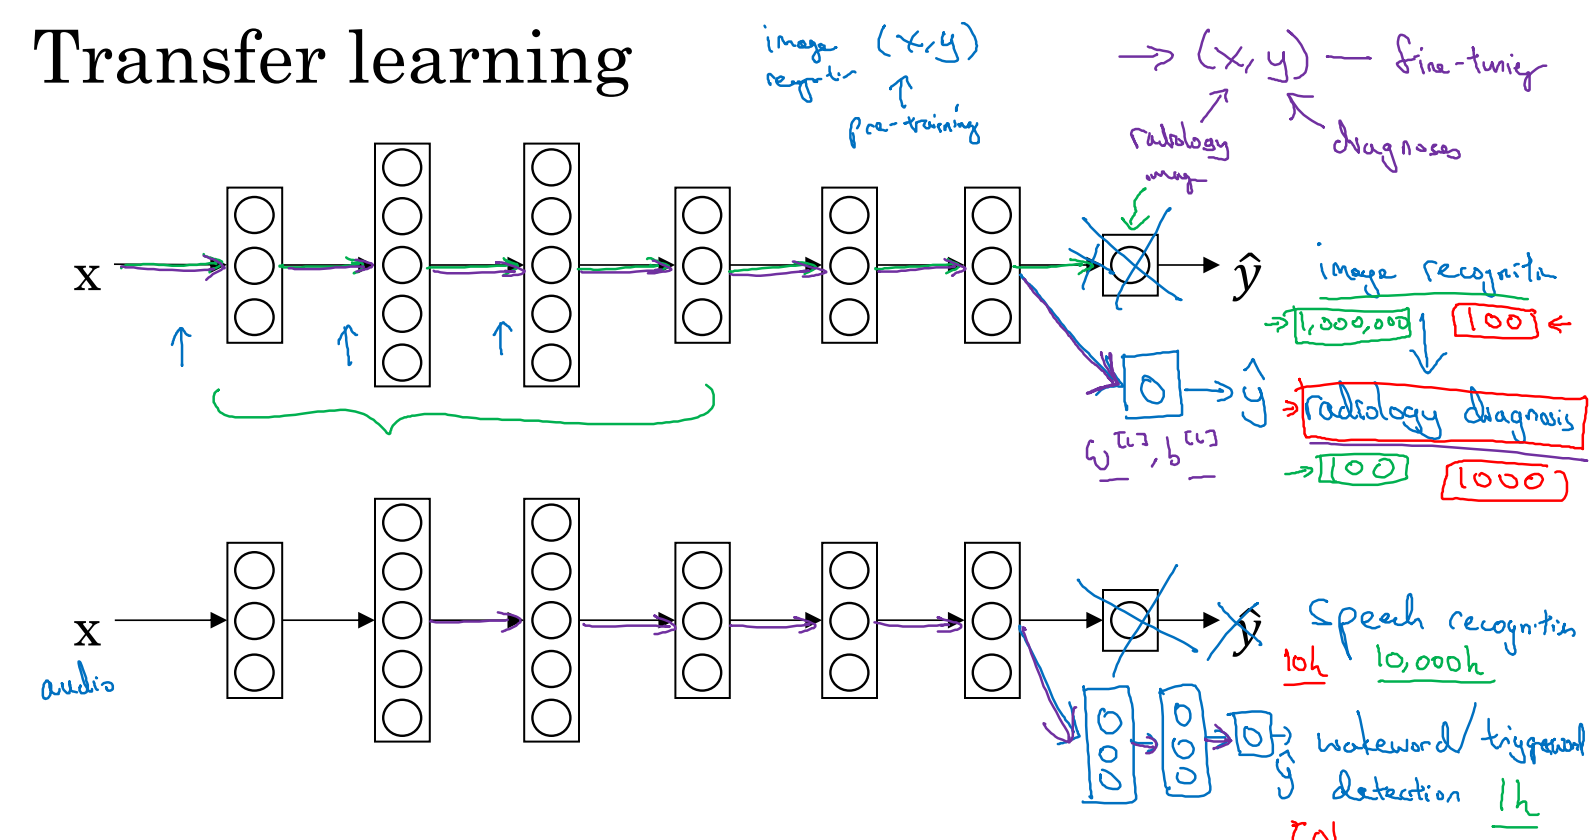 Transfer learning
image (x,y)
recognition
pre-training
→ (x, y) — fine-tuning
radiology
image
diagnoses
x
ŷ
image recognition
1,000,000 100
ŷ
radiology diagnosis
w[L], b[L]
100 1000
x
audio
ŷ
speech recognition
10h 10,000h
ŷ
wakeword/triggerword
detection
1h